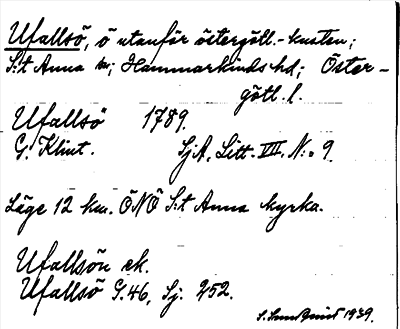 Ufallsö, ö utanför östergötl.-kusten;
S:t Anna sn; Hammarkinds hd; Öster-
götl. l.
Ufallsö 1789.
G. Klint. SjA, Litt. VIII, N:o 9.
Läge 12 km. ÖNÖ S:t Anna kyrka.
Ufallsön ek.
Ufallsö G.46, Sj. 252.
1939.